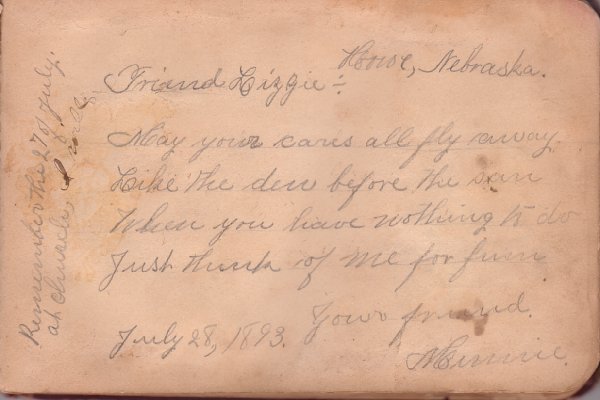 Howe, Nebraska.
Friend Lizzie:-
May your cares all fly away
Like the dew before the sun
When you have nothing to do
Just think of me for fun
Your friend.
July 28, 1893.
Minnie.
Remember the 27 of July.
at church, I will.